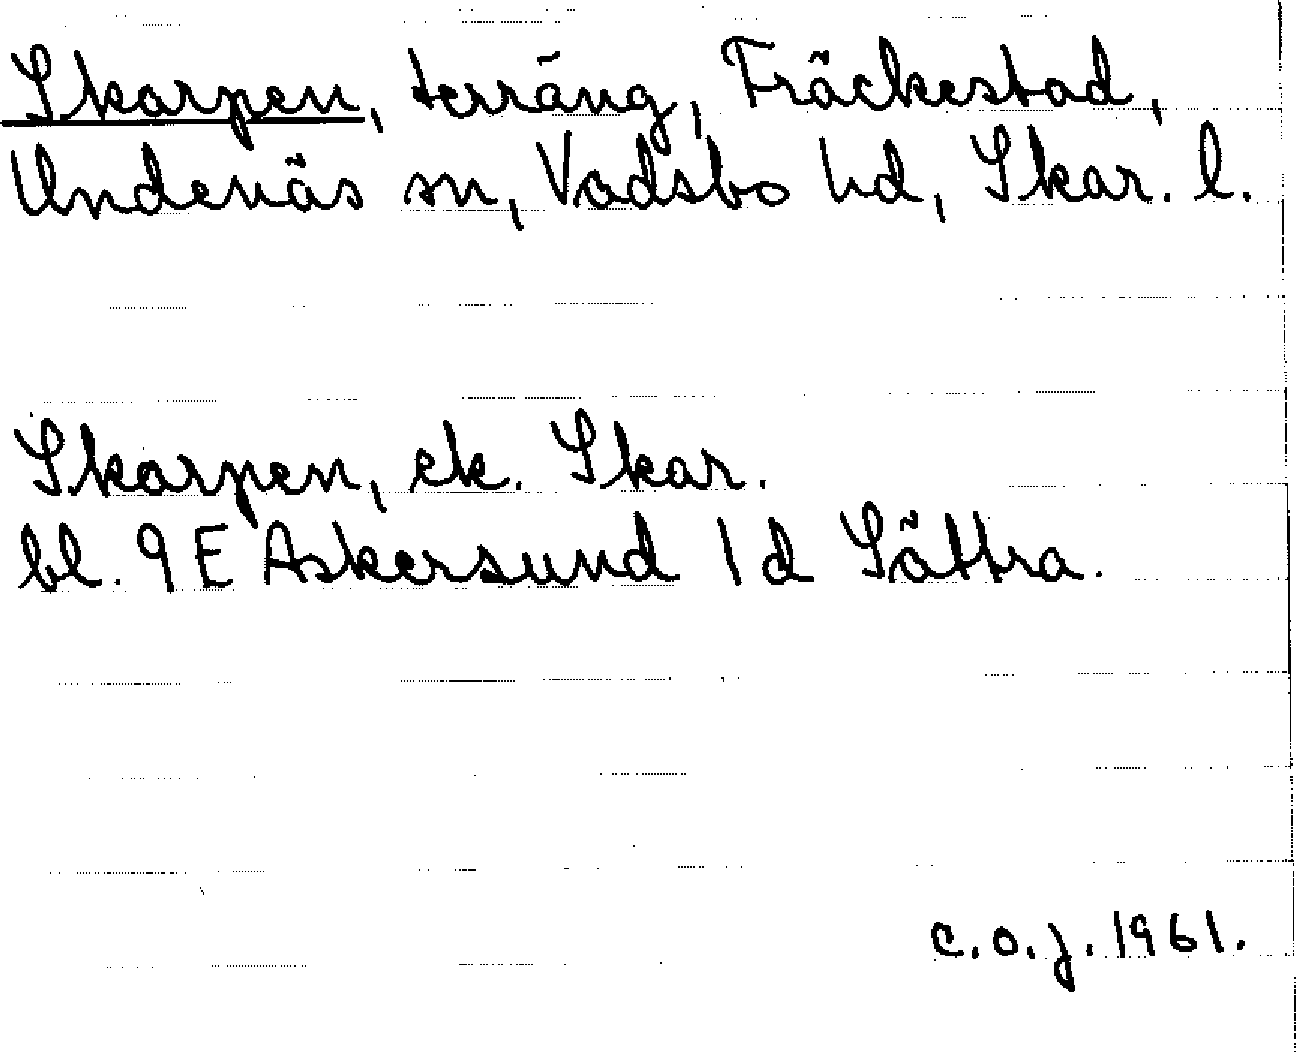 Skarpen, terräng, Fräckestad,
Undenäs sn, Vadsbo hd, Skar. l.
Skarpen, ek. Skar.
bl. 9 E Askersund 1 d Sättra.
C.O.J. 1961.